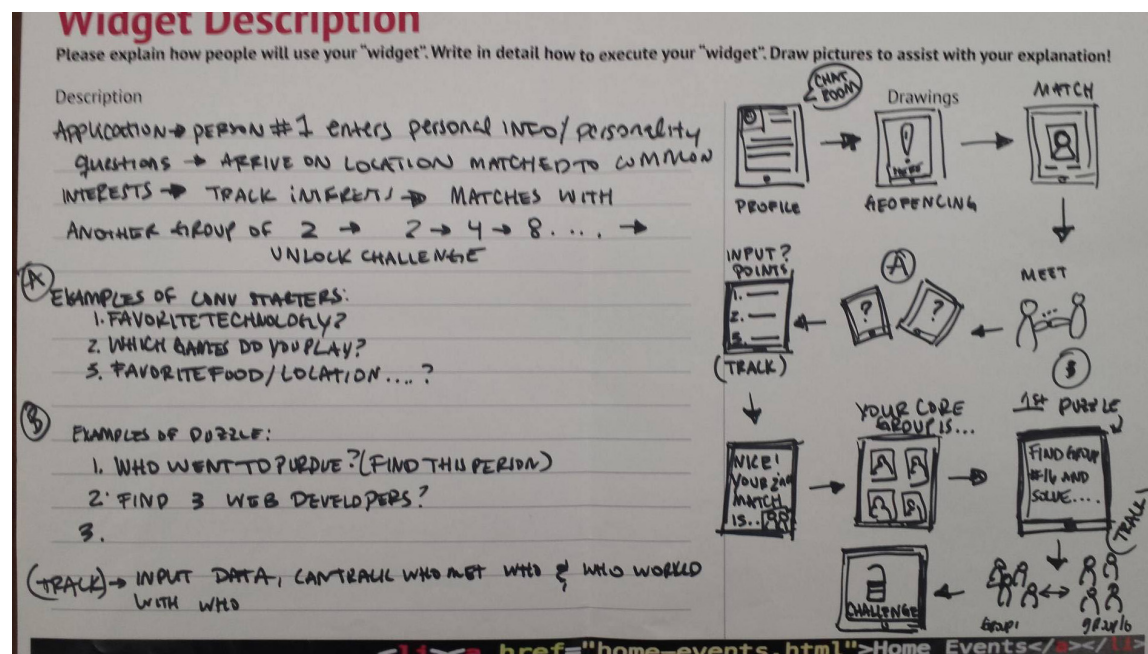 Widget Description
Please explain how people will use your "widget". Write in detail how to execute your "widget". Draw pictures to assist with your explanation!
Description
APPLICATION → PERSON #1 enters personal INFO/personality
questions → ARRIVE ON LOCATION MATCHED TO COMMON
INTERESTS → TRACK INTERESTS → MATCHES WITH
ANOTHER GROUP OF 2 → 2 → 4 → 8 . . . . →
UNLOCK CHALLENGE
A
EXAMPLES OF CONV STARTERS:
1. FAVORITE TECHNOLOGY?
2. WHICH GAMES DO YOU PLAY?
3. FAVORITE FOOD/LOCATION....?
B
EXAMPLES OF PUZZLE:
1. WHO WENT TO PURDUE? (FIND THIS PERSON)
2. FIND 3 WEB DEVELOPERS?
3.
(TRACK) → INPUT DATA, CAN TRACK WHO MET WHO & WHO WORKED
WITH WHO
Drawings
CHAT
ROOM
PROFILE
GEOFENCING
MATCH
MEET
A
? ?
INPUT?
POINTS
1.
2.
3.
(TRACK)
NICE!
YOUR 2nd
MATCH
IS..
YOUR CORE
GROUP IS...
1st PUZZLE
FIND GROUP
#16 AND
SOLVE....
(TRACK)
group 1
group 16
CHALLENGE
<li><a href="home-events.html">Home Events</a></li>